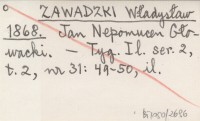 ZAWADZKI Władysław
1868. Jan Nepomucen Gło-
wacki. — Tyg. Il. ser. 2,
t. 2, nr 31: 49-50, il.